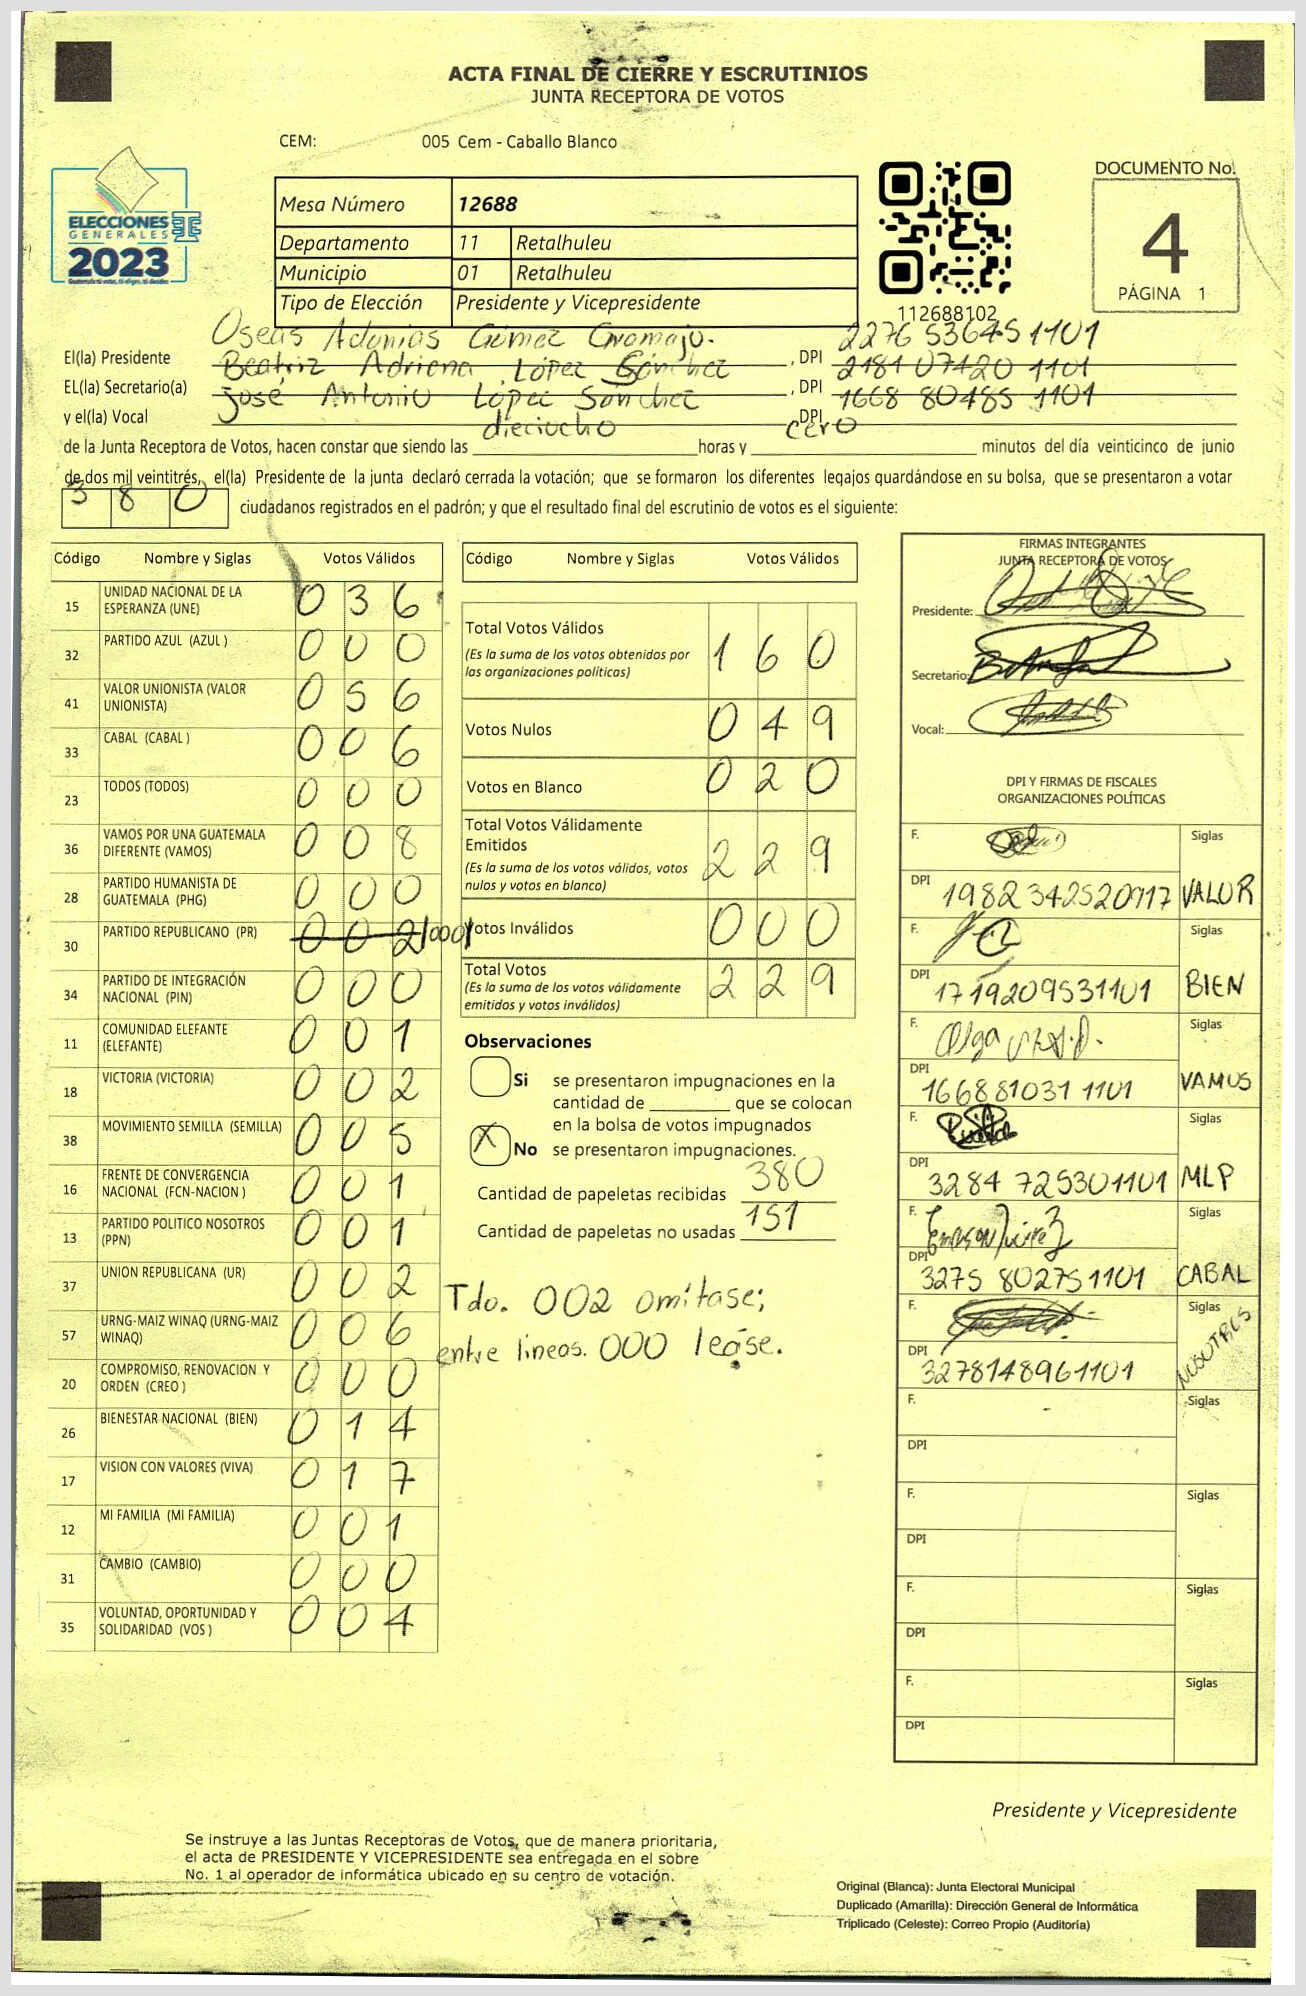 ACTA FINAL DE CIERRE Y ESCRUTINIOS
JUNTA RECEPTORA DE VOTOS
CEM: 005 Cem - Caballo Blanco
ELECCIONES
GENERALES
2023
Mesa Número 12688
Departamento 11 Retalhuleu
Municipio 01 Retalhuleu
Tipo de Elección Presidente y Vicepresidente
112688102
DOCUMENTO No.
4
PÁGINA 1
El(la) Presidente Oseas Adonias Gómez Gramajo. , DPI 2276 53645 1101
EL(la) Secretario(a) Beatriz Adriana López Sánchez , DPI 2181 07420 1101
y el(la) Vocal José Antonio López Sánchez DPI 1668 80485 1101
de la Junta Receptora de Votos, hacen constar que siendo las dieciocho horas y cero minutos del día veinticinco de junio
de dos mil veintitrés, el(la) Presidente de la junta declaró cerrada la votación; que se formaron los diferentes legajos guardándose en su bolsa, que se presentaron a votar
380 ciudadanos registrados en el padrón; y que el resultado final del escrutinio de votos es el siguiente:
Código Nombre y Siglas Votos Válidos
15 UNIDAD NACIONAL DE LA ESPERANZA (UNE) 0 3 6
32 PARTIDO AZUL (AZUL ) 0 0 0
41 VALOR UNIONISTA (VALOR UNIONISTA) 0 5 6
33 CABAL (CABAL ) 0 0 6
23 TODOS (TODOS) 0 0 0
36 VAMOS POR UNA GUATEMALA DIFERENTE (VAMOS) 0 0 8
28 PARTIDO HUMANISTA DE GUATEMALA (PHG) 0 0 0
30 PARTIDO REPUBLICANO (PR) 0 0 2 /000/
34 PARTIDO DE INTEGRACIÓN NACIONAL (PIN) 0 0 0
11 COMUNIDAD ELEFANTE (ELEFANTE) 0 0 1
18 VICTORIA (VICTORIA) 0 0 2
38 MOVIMIENTO SEMILLA (SEMILLA) 0 0 5
16 FRENTE DE CONVERGENCIA NACIONAL (FCN-NACION ) 0 0 1
13 PARTIDO POLITICO NOSOTROS (PPN) 0 0 1
37 UNION REPUBLICANA (UR) 0 0 2
57 URNG-MAIZ WINAQ (URNG-MAIZ WINAQ) 0 0 6
20 COMPROMISO, RENOVACION Y ORDEN (CREO ) 0 0 0
26 BIENESTAR NACIONAL (BIEN) 0 1 4
17 VISION CON VALORES (VIVA) 0 1 7
12 MI FAMILIA (MI FAMILIA) 0 0 1
31 CAMBIO (CAMBIO) 0 0 0
35 VOLUNTAD, OPORTUNIDAD Y SOLIDARIDAD (VOS ) 0 0 4
Código Nombre y Siglas Votos Válidos
Total Votos Válidos 1 6 0
(Es la suma de los votos obtenidos por
las organizaciones políticas)
Votos Nulos 0 4 9
Votos en Blanco 0 2 0
Total Votos Válidamente
Emitidos 2 2 9
(Es la suma de los votos válidos, votos
nulos y votos en blanco)
Votos Inválidos 0 0 0
Total Votos 2 2 9
(Es la suma de los votos válidamente
emitidos y votos inválidos)
Observaciones
Si se presentaron impugnaciones en la
cantidad de ________ que se colocan
en la bolsa de votos impugnados
X No se presentaron impugnaciones.
Cantidad de papeletas recibidas 380
Cantidad de papeletas no usadas 151
Tdo. 002 omitase;
entre lineas. 000 leáse.
FIRMAS INTEGRANTES
JUNTA RECEPTORA DE VOTOS
Presidente:
Secretario:
Vocal:
DPI Y FIRMAS DE FISCALES
ORGANIZACIONES POLÍTICAS
F. Siglas
DPI 1982 342520917 VALOR
F. Siglas
DPI 1719209531101 BIEN
F. Olga Siglas
DPI 166881031 1101 VAMOS
F. Siglas
DPI 3284 725301101 MLP
F. Siglas
DPI 3275 80275 1101 CABAL
F. Siglas
DPI 3278148961101 NOSOTROS
F. Siglas
DPI
F. Siglas
DPI
F. Siglas
DPI
F. Siglas
DPI
Presidente y Vicepresidente
Se instruye a las Juntas Receptoras de Votos, que de manera prioritaria,
el acta de PRESIDENTE Y VICEPRESIDENTE sea entregada en el sobre
No. 1 al operador de informática ubicado en su centro de votación.
Original (Blanca): Junta Electoral Municipal
Duplicado (Amarilla): Dirección General de Informática
Triplicado (Celeste): Correo Propio (Auditoría)